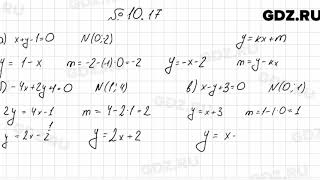 GDZ.RU
№ 10.17
а) x+y-1=0 N(0;-2) y=кx+m
y = 1-x m=-2-(-1)·0=-2 y=-x-2 m=y-кx
б) -4x+2y+1=0 N(1;4) в) x-y+3=0 N(0;1)
2y=4x-1 m=4-2·1=2 y=x+3 m=1-1·0=1
y=2x-½ y=2x+2 y=x